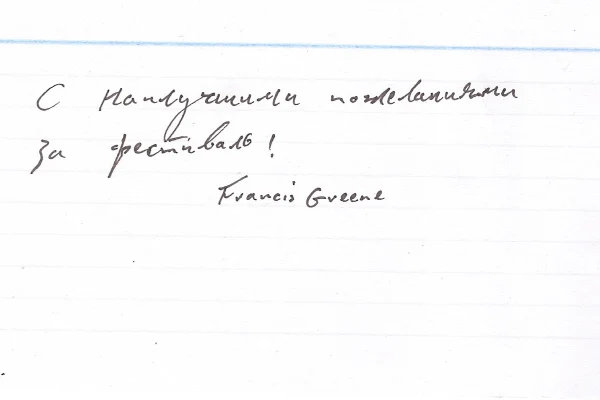 С наилучшими пожеланиями
за фестиваль!
Francis Greene